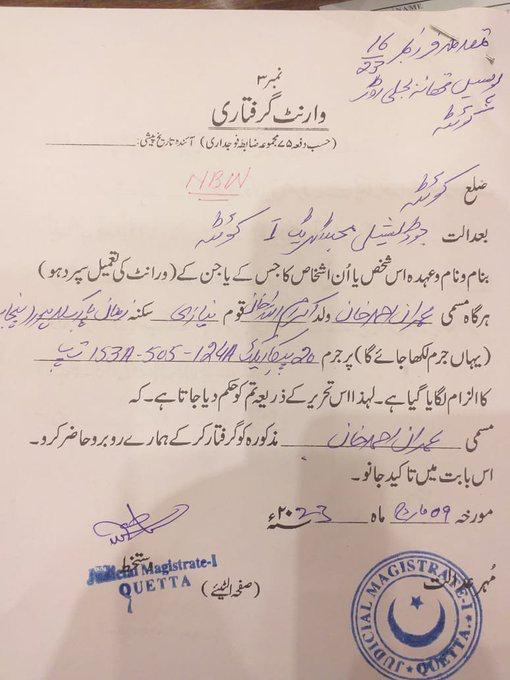 مقدمہ نمبر 16/23
تھانہ بجلی روڈ
کوئٹہ
نمبر ۳
وارنٹ گرفتاری
(حسب دفعہ ۷۵ مجموعہ ضابطہ فوجداری) آئندہ تاریخ پیشی:
NBW
ضلع کوئٹہ
بعدالت جوڈیشل مجسٹریٹ I کوئٹہ
بنام و نام و عہدہ اس شخص یا اُن اشخاص کا جس کے یا جن کے (ورانٹ کی تعمیل سپرد ہو)
ہر گاہ مسمی عمران احمد خان ولد اکرام اللہ خان قوم نیازی سکنہ زمان پارک لاہور
(یہاں جرم لکھا جائے گا) پر جرم 20 پیکا ایکٹ 153A-505-124A ت پ
کا الزام لگایا گیا ہے۔ لہذا اس تحریر کے ذریعہ تم کو حکم دیا جاتا ہے۔ کہ
مسمی عمران احمد خان مذکورہ کو گرفتار کر کے ہمارے روبرو حاضر کرو۔
اس بابت میں تاکید جانو۔
مورخہ 09 ماہ مارچ ۲۰23ء
دستخط
Judicial Magistrate-I
QUETTA
(صفحہ الٹیئے)
مُہر عدالت
JUDICIAL MAGISTRATE-I
QUETTA